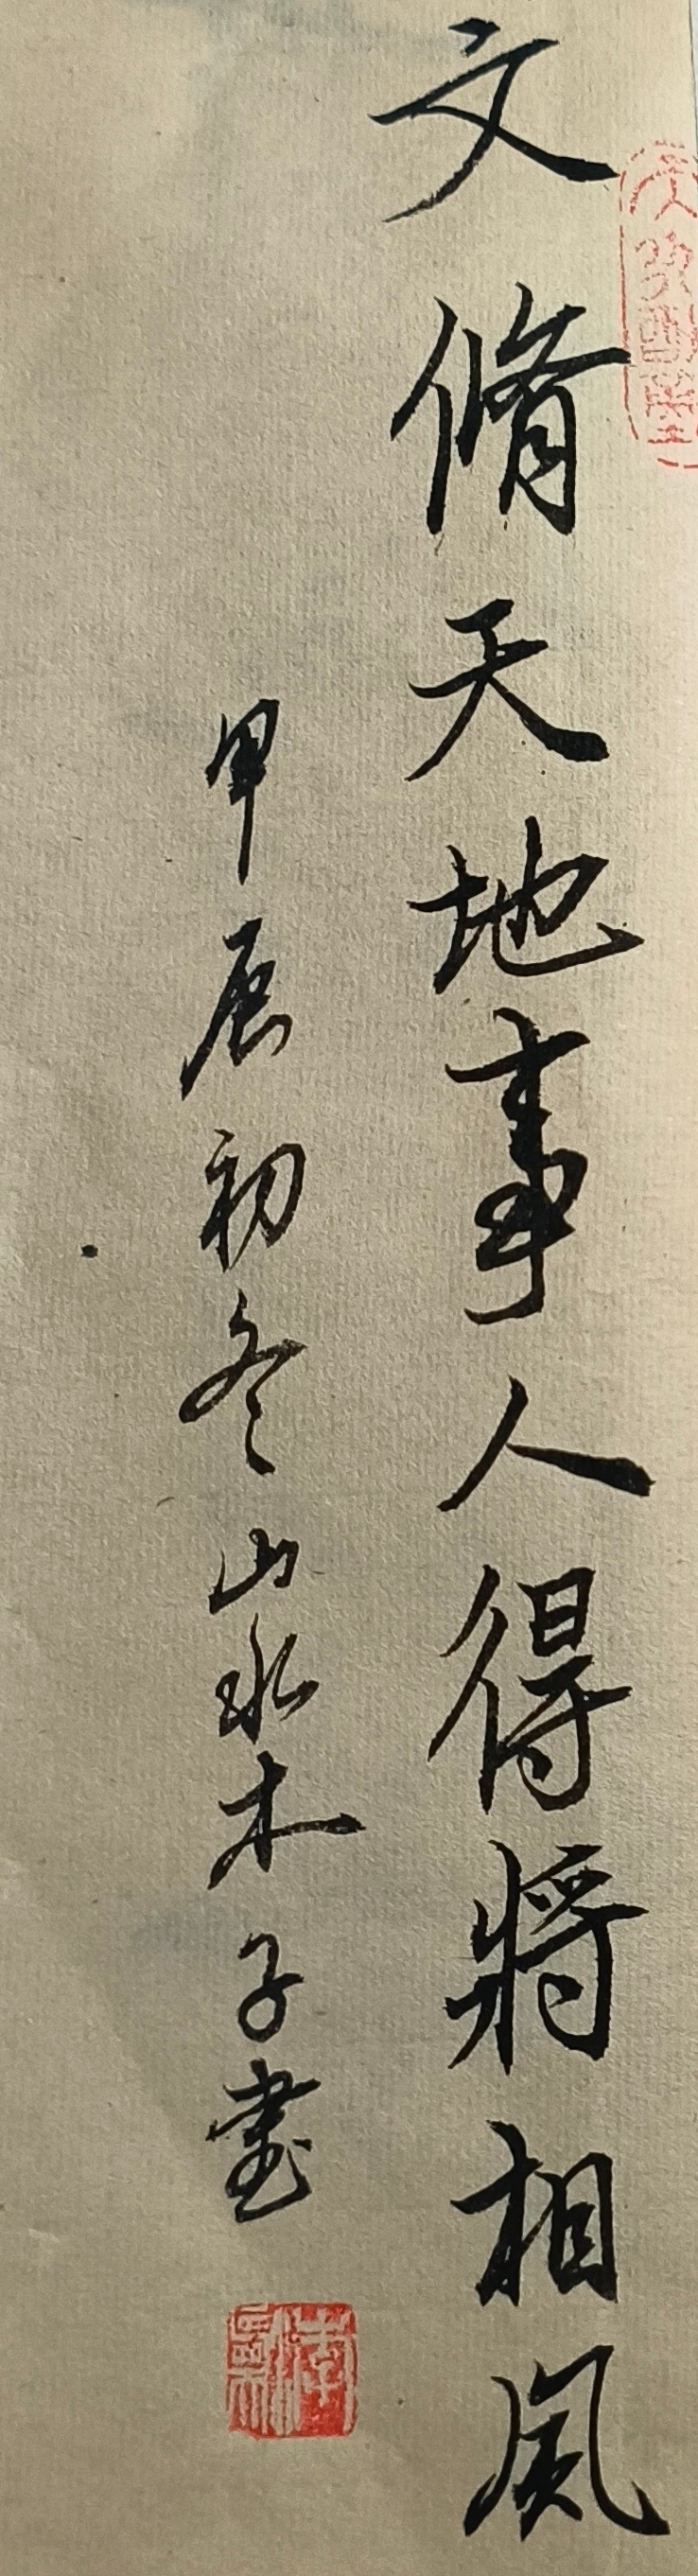 文脩天地事人得將相風
甲辰初冬山水木子書